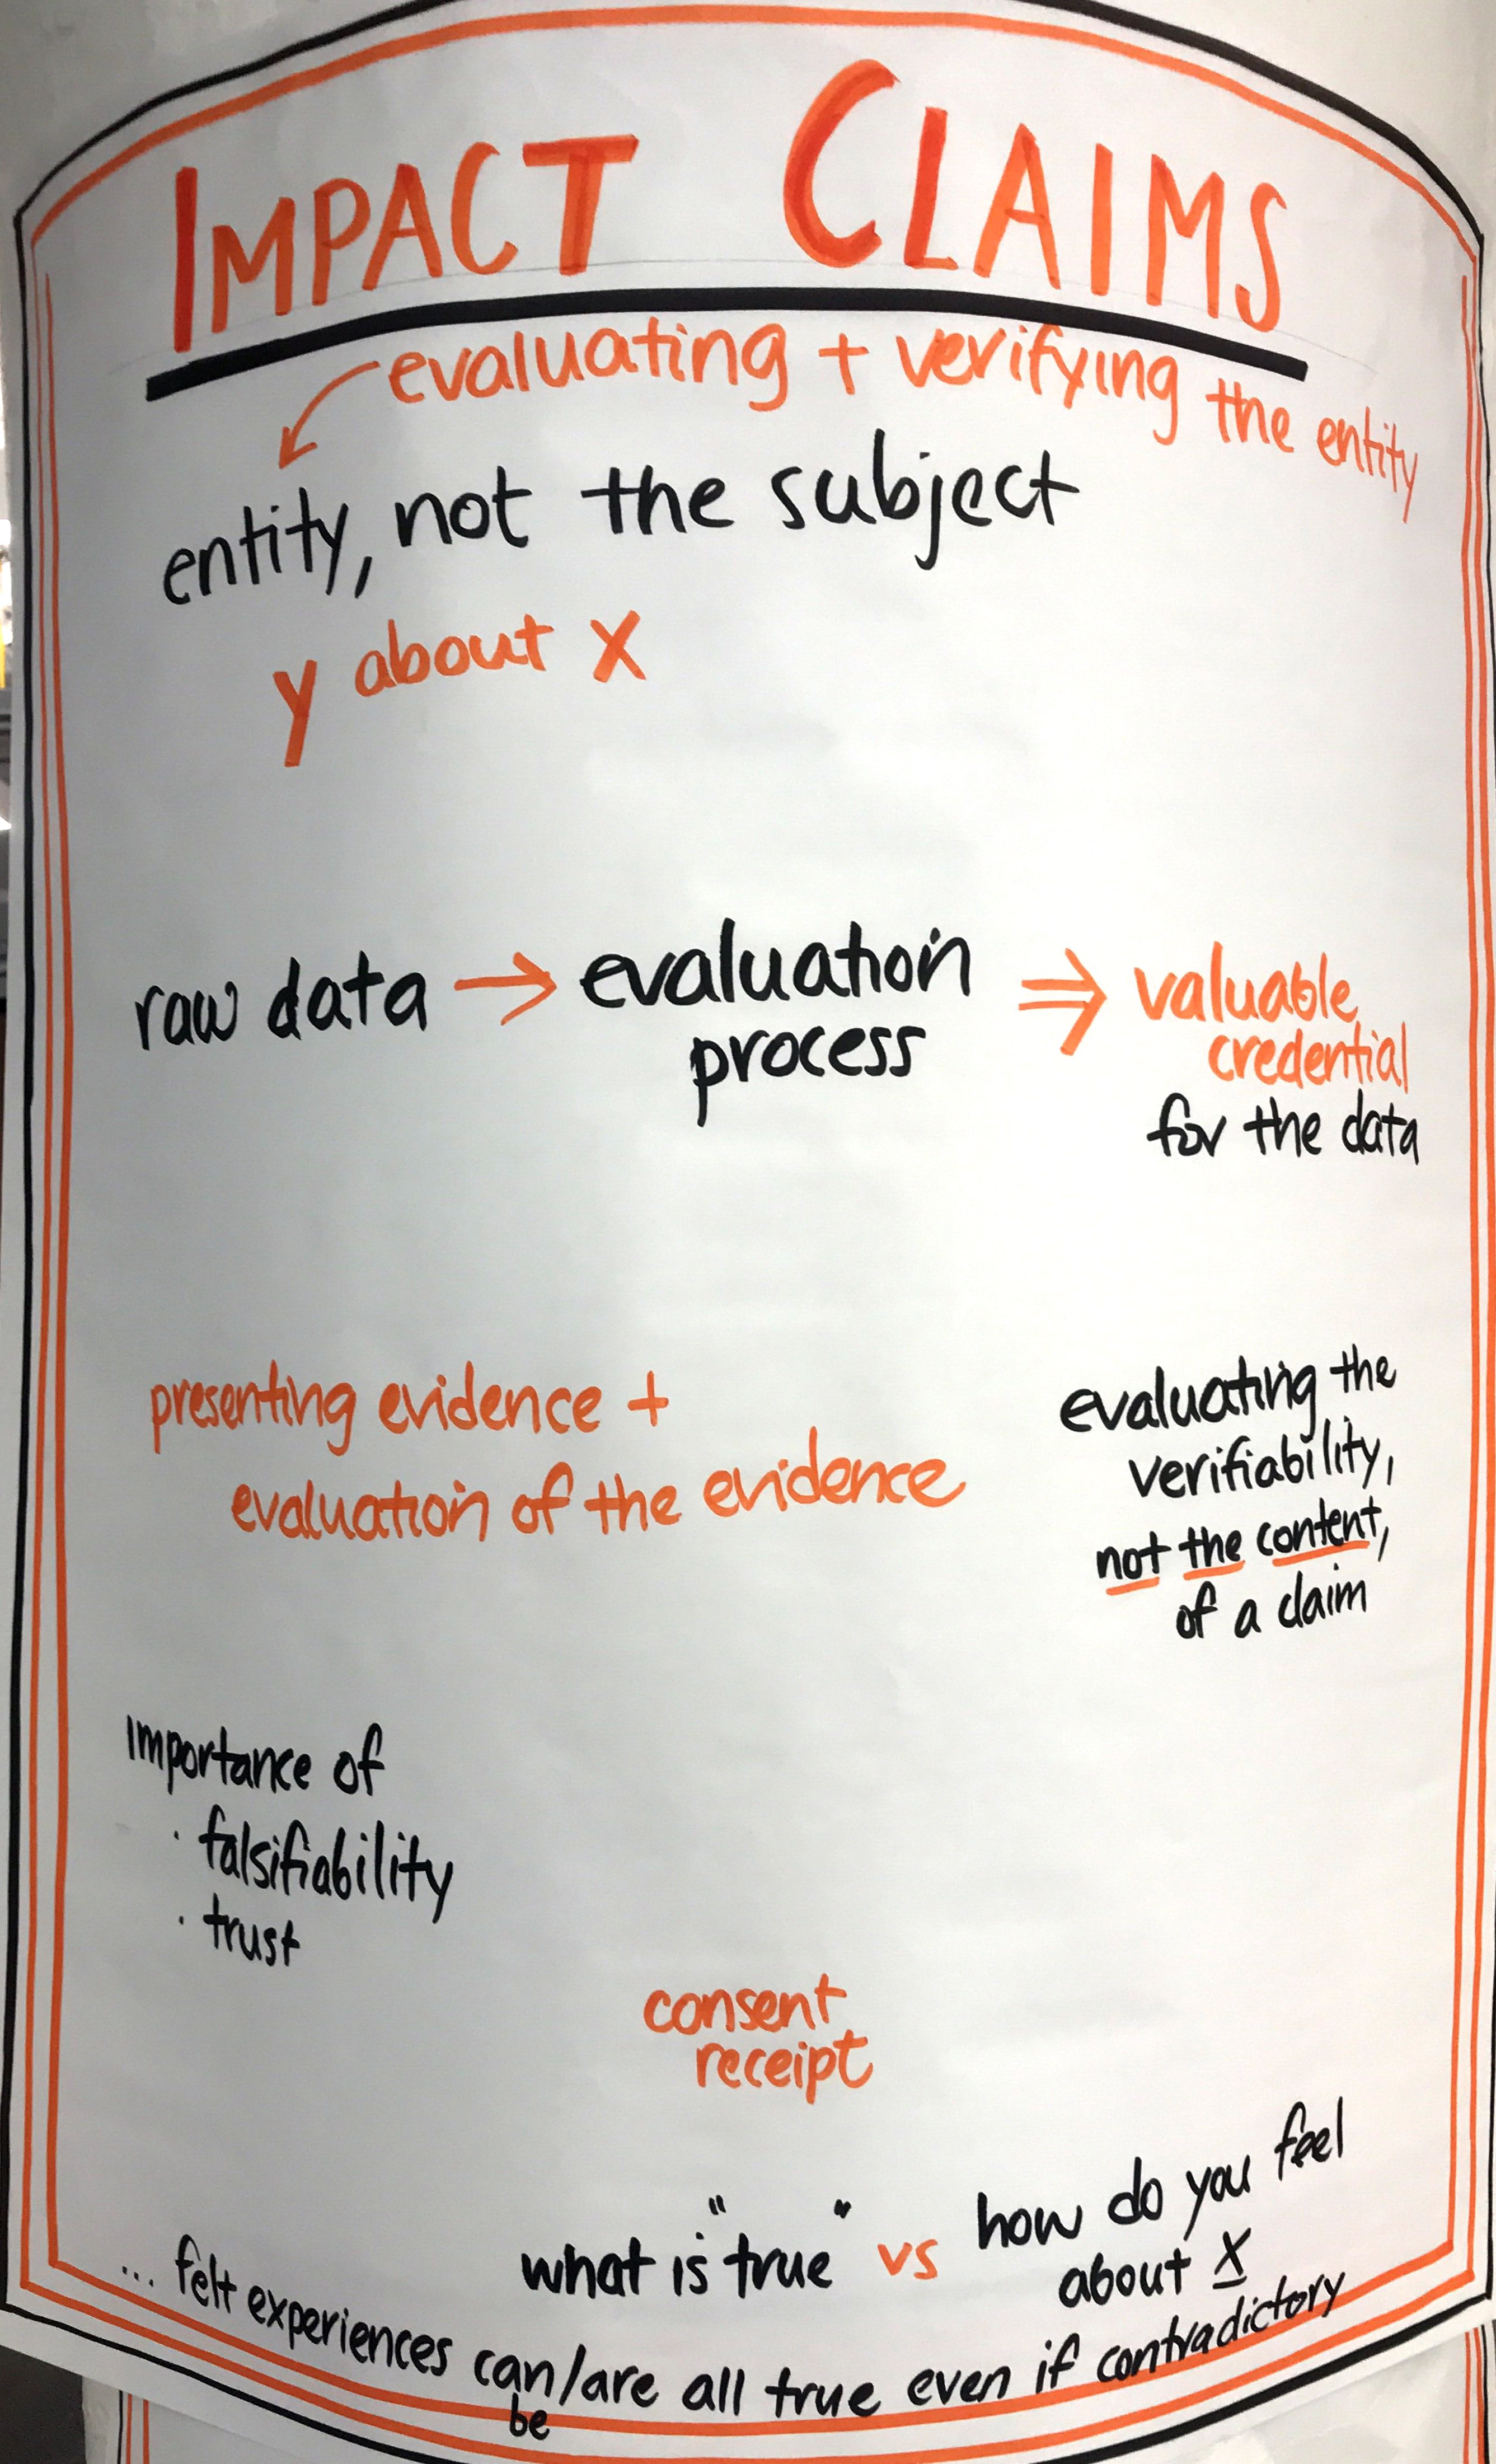 IMPACT CLAIMS
evaluating + verifying the entity
entity, not the subject
y about X
raw data → evaluation process ⇒ valuable credential for the data
presenting evidence +
evaluation of the evidence
evaluating the
verifiability,
not the content,
of a claim
Importance of
· falsifiability
· trust
consent
receipt
what is "true" vs how do you feel
about X
... felt experiences can/are all true even if contradictory
be